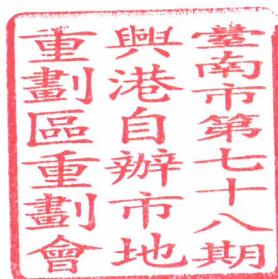 臺南市第七十八期
興港自辦市地
重劃區重劃會